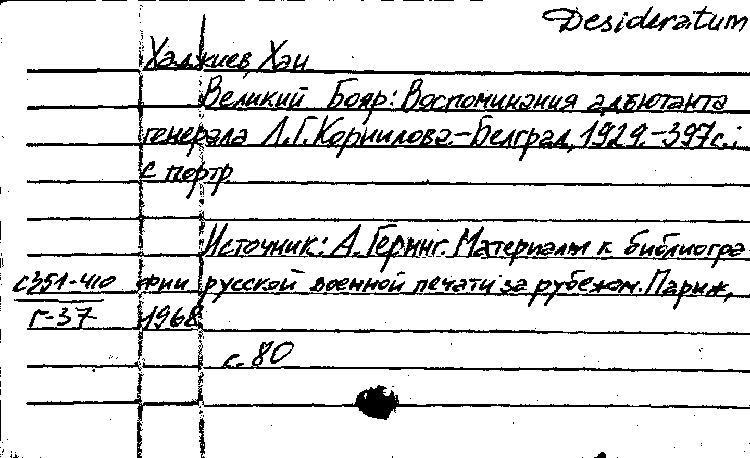 Desideratum
Хаджиев, Хан
Великий Бояр: Воспоминания адъютанта
генерала Л.Г.Корнилова.-Белград, 1929.-397с.;
с портр.
Источник: А.Геринг. Материалы к библиогра-
с351-410 фии русской военной печати за рубежом. Париж,
Г-37 1968
с. 80